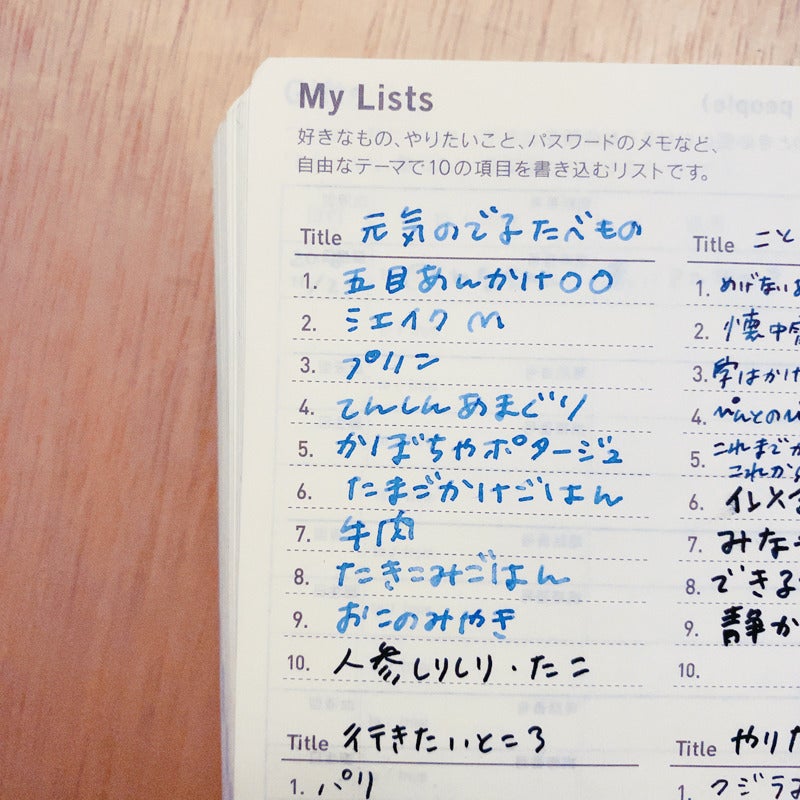 My Lists
好きなもの、やりたいこと、パスワードのメモなど、
自由なテーマで10の項目を書き込むリストです。
Title 元気のでるたべもの
1. 五目あんかけ〇〇
2. シェイク M
3. プリン
4. てんしんあまぐり
5. かぼちゃポタージュ
6. たまごかけごはん
7. 牛肉
8. たきこみごはん
9. おこのみやき
10. 人参しりしり・たこ
Title 行きたいところ
1. パリ
Title こと
1. めげない
2. 懐中
3. 字はかけ
4. ぺんとの
5. これまで
これから
6. イレメ
7. みな
8. できる
9. 静か
10.
Title やりた
1. クジラ